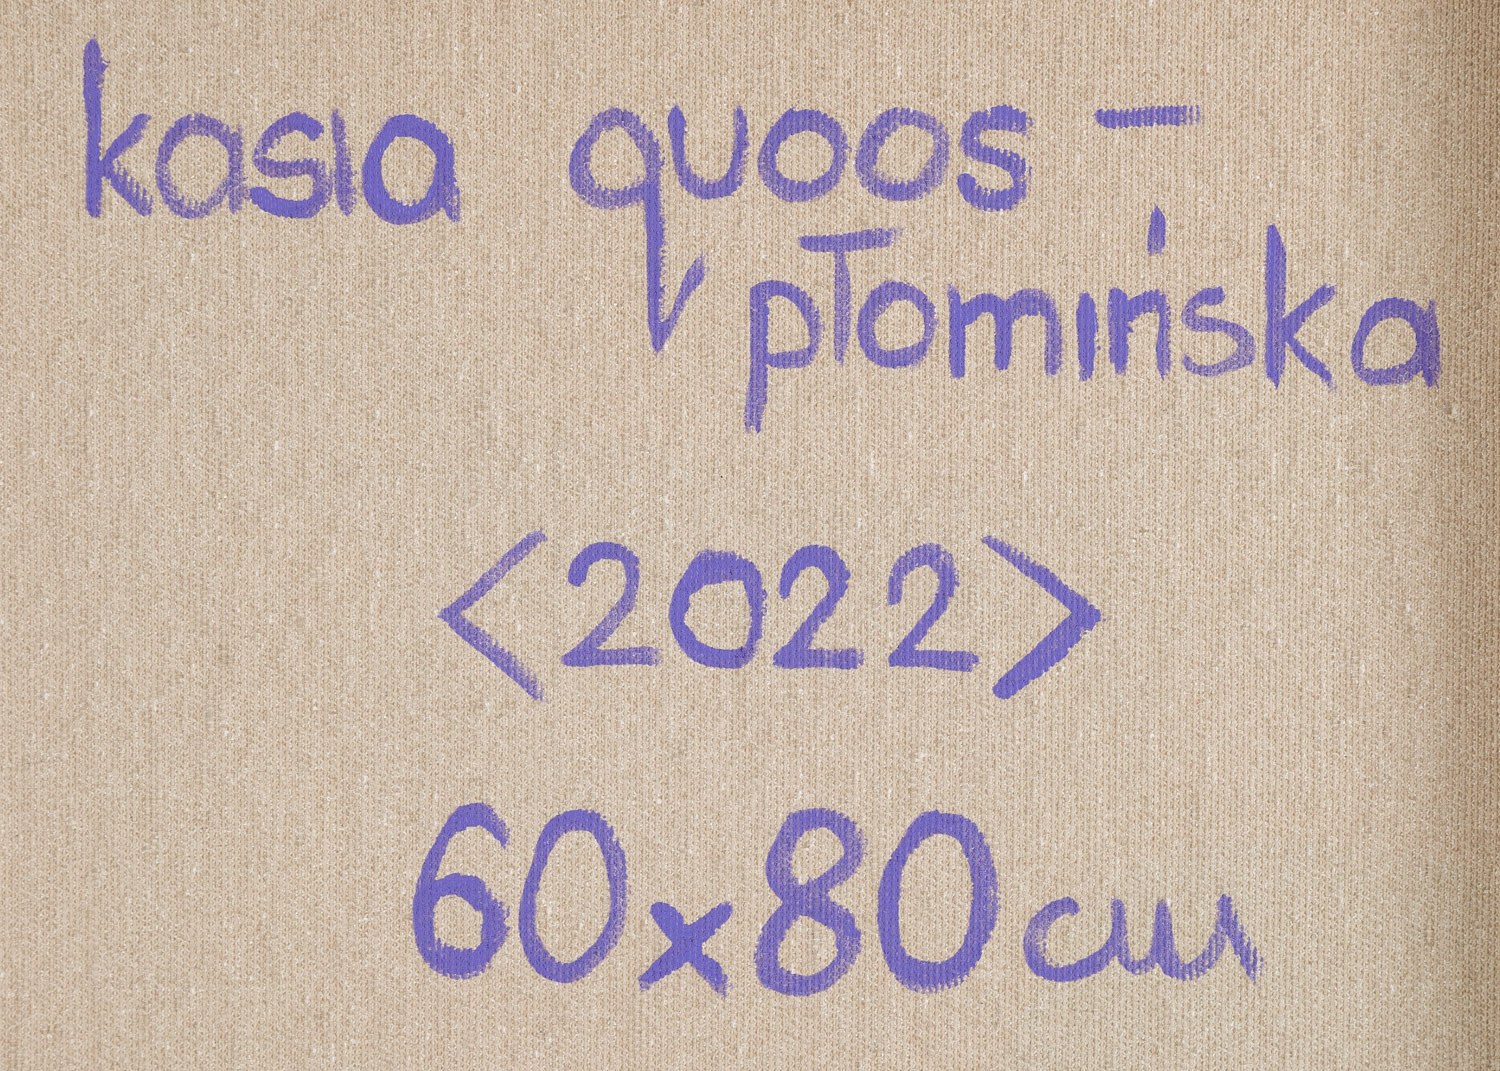 kasia quoos –
płomińska
<2022>
60x80cm